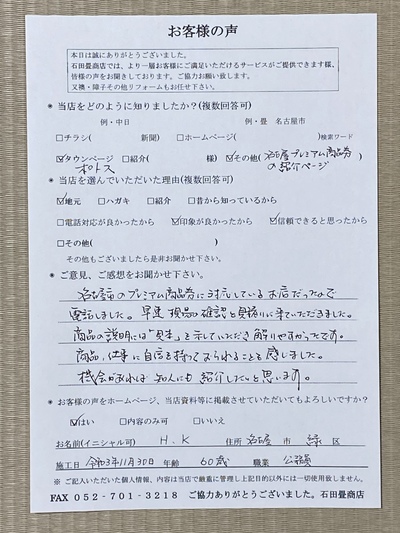 お客様の声
本日は誠にありがとうございました。
石田畳商店では、より一層お客様にご満足いただけるサービスがご提供できます様、
皆様の声をお聞きしております。ご協力お願い致します。
又襖・障子その他リフォームもお任せ下さい。
* 当店をどのように知りましたか?(複数回答可)
例・中日 例・畳 名古屋市
□チラシ( 新聞) □ホームページ( )検索ワード
☑タウンページ □紹介( 様) ☑その他(名古屋プレミアム商品券
ポトス の紹介ページ)
* 当店を選んでいただいた理由(複数回答可)
☑地元 □ハガキ □紹介 □昔から知っているから
□電話対応が良かったから ☑印象が良かったから ☑信頼できると思ったから
□その他( )
その他もございましたら是非お聞かせ下さい。
* ご意見、ご感想をお聞かせ下さい。
名古屋市のプレミアム商品券に対応しているお店だったので
電話しました。早速現品の確認と見積りに来ていただきました。
商品の説明には「見本」を示していただき解りやすかったです。
商品、仕事に自信を持っておられることを感じました。
機会があれば知人にも紹介したいと思います。
* お客様の声をホームページ、当店資料等に掲載させていただいてもよろしいですか?
☑はい □内容のみ可 □いいえ
お名前(イニシャル可) H.K 住所 名古屋 市 緑 区
施工日 令和3年11月30日 年齢 60歳 職業 公務員
※ ご記入いただいた個人情報、内容は当店で厳重に管理し上記目的以外には一切使用致しません。
FAX 052-701-3218 ご協力ありがとうございました。石田畳商店